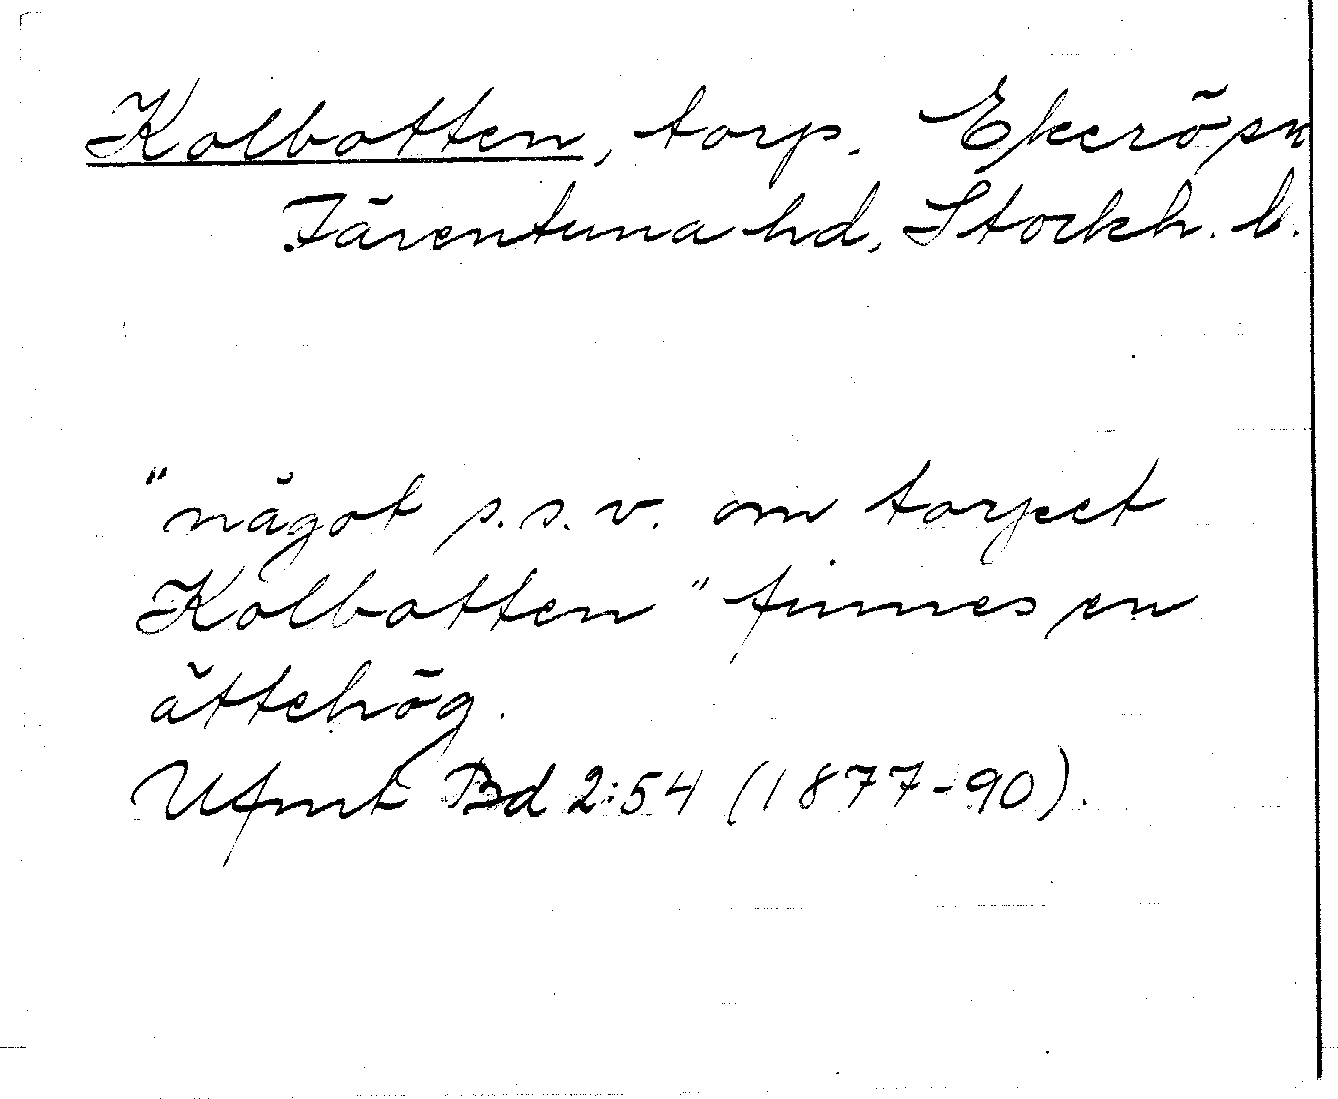 Kolbotten, torp. Ekerö sn
Färentuna hd, Stockh. l.
"något s.s.v. om torpet
Kolbotten" finnes en
ättehög.
Ufmt Bd 2:54 (1877-90).